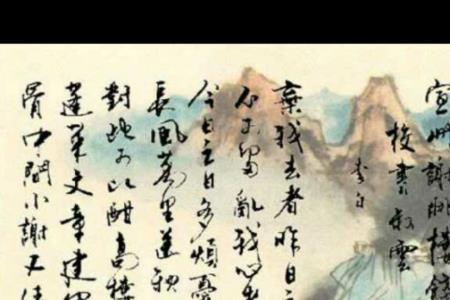 宣州謝朓樓餞
校書叔雲
李白
棄我去者昨日之
不可留亂我心者
今日之日多煩憂
長風萬里送秋
對此可以酣高樓
蓬萊文章建安
骨中間小謝又清